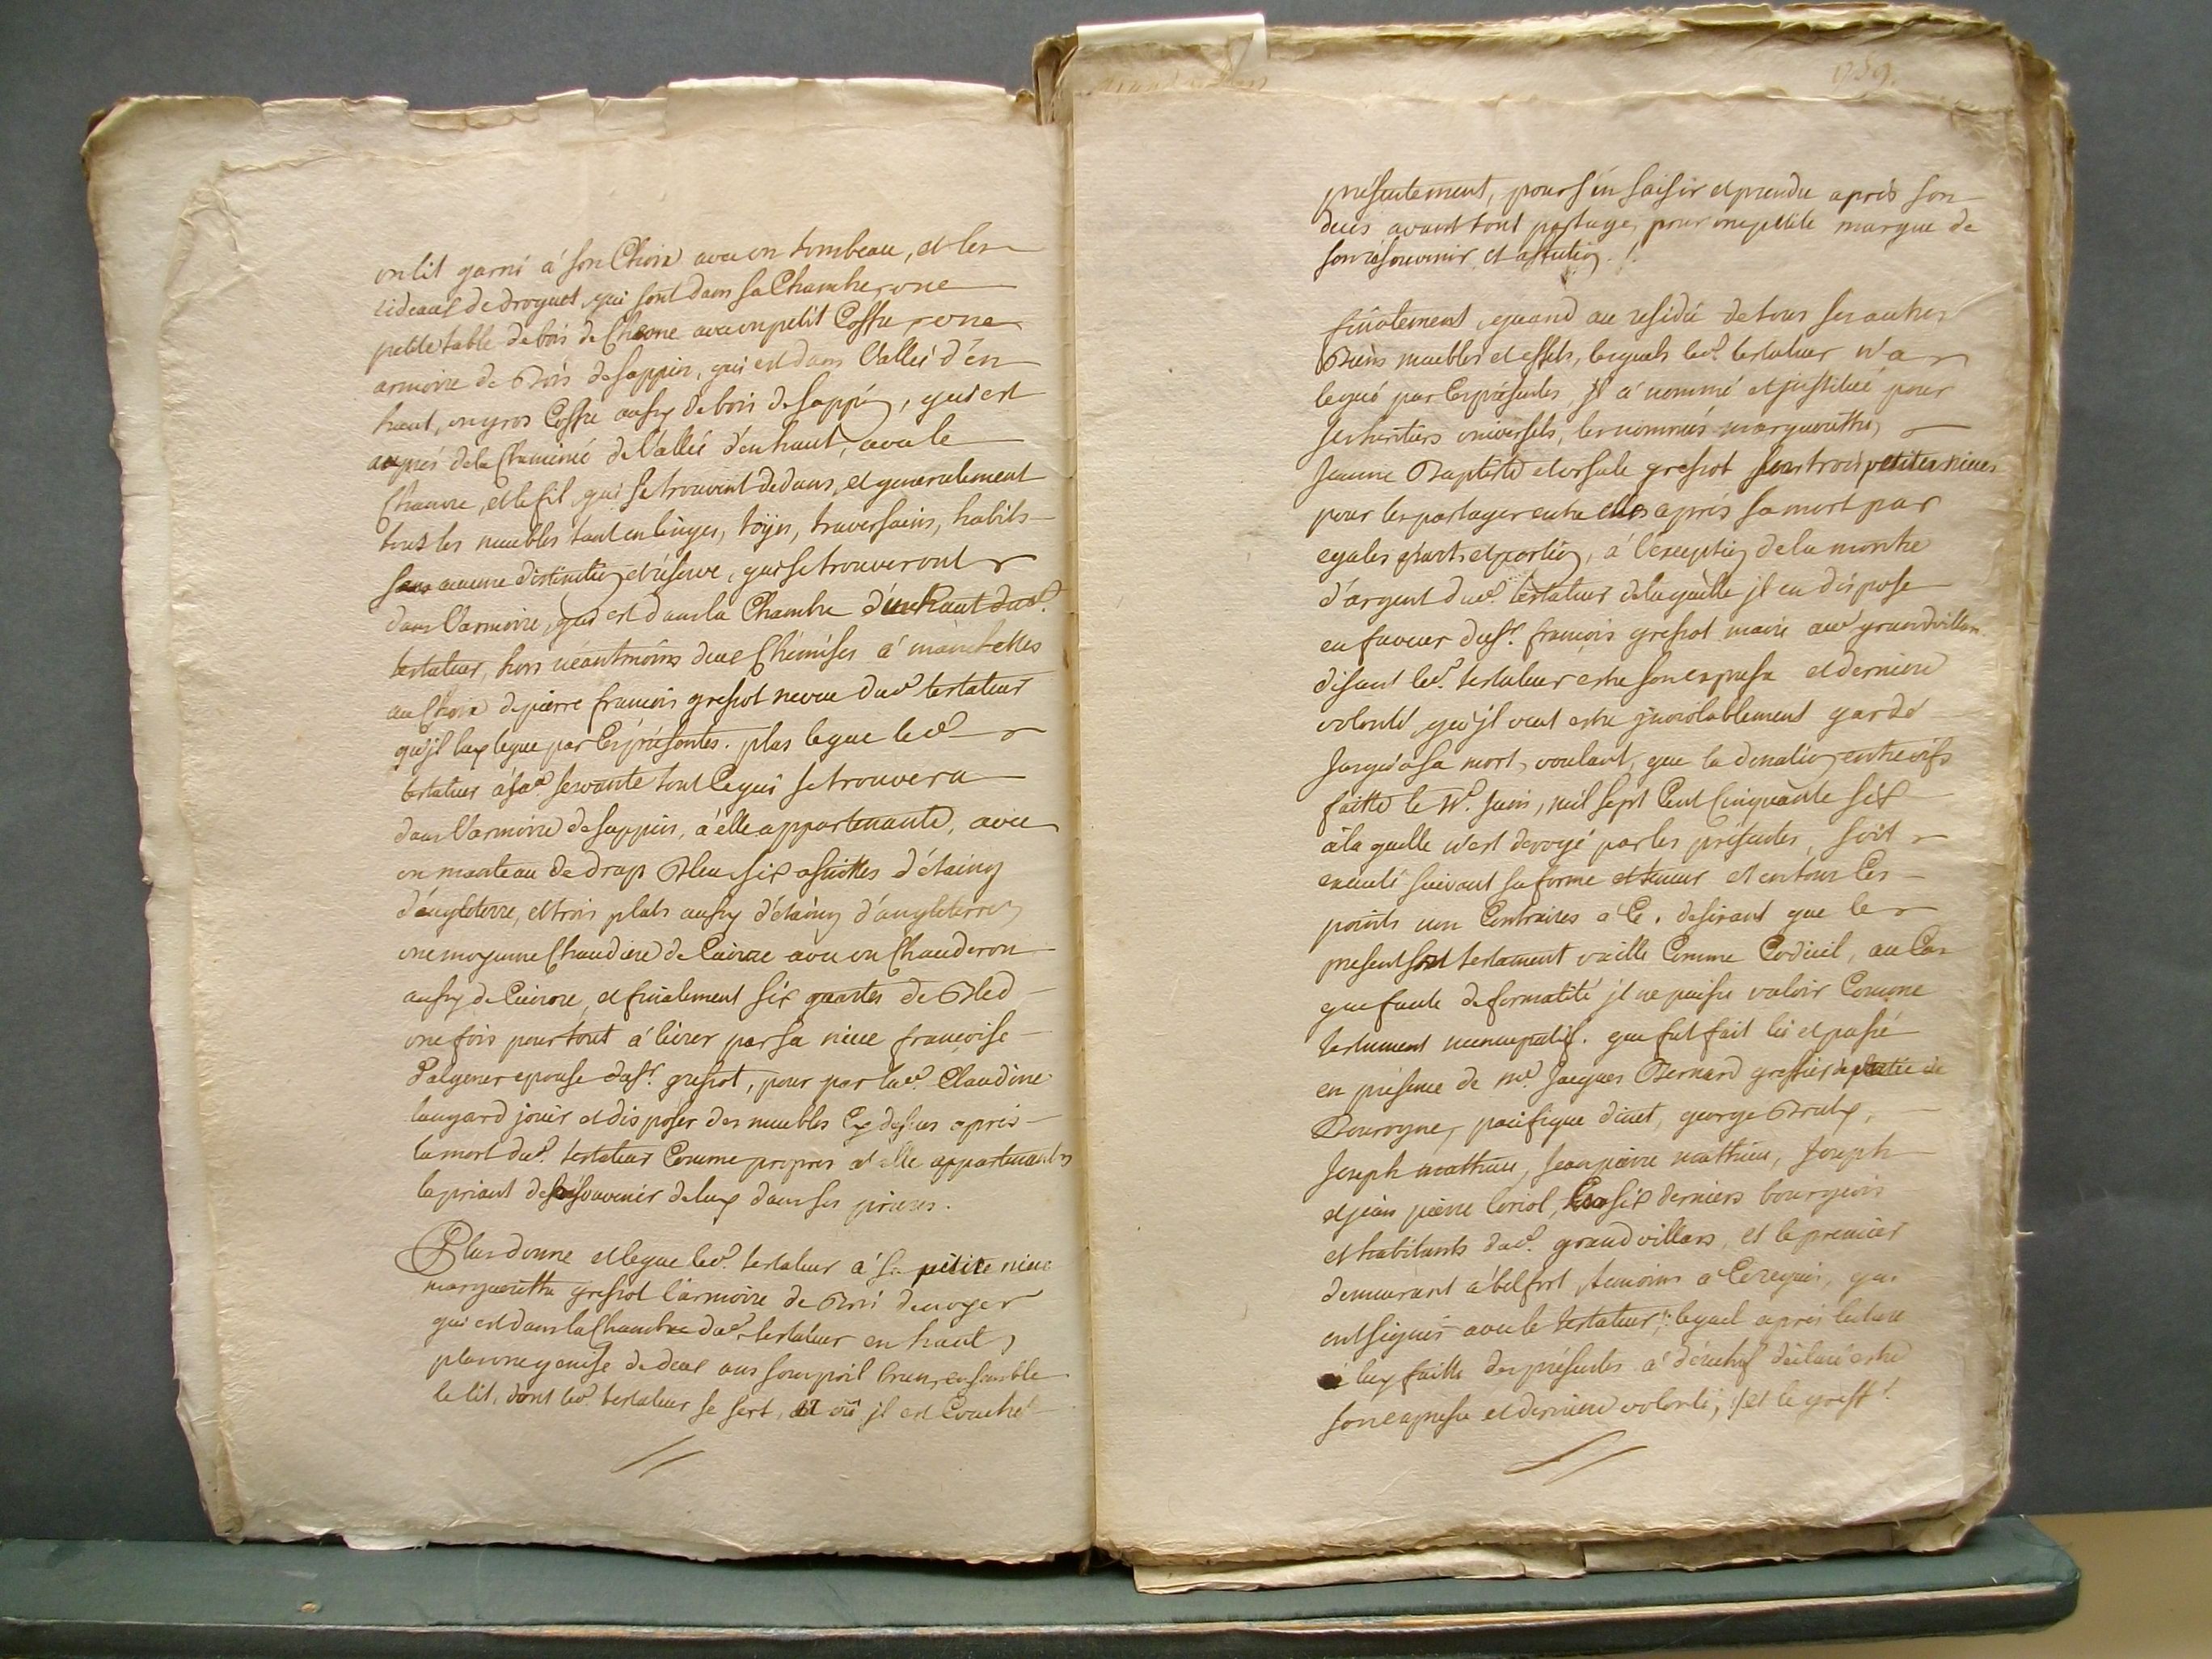 un lit garni à son Choix avec un tombeau, et les
rideaux de droguet, qui sont dans sa Chambre, une
petite table de bois de Chesne avec un petit Coffre, une
armoire de Bois de sappin, qui est dans l'allée d'en
haut, un gros Coffre aussy de bois de sappin, qui est
auprés de la Cheminée de l'allée d'en haut, avec le
Chanvre, et le fil, qui se trouvent dedans, et generalement
tous les meubles tant en linges, toÿes, traversains, habits
sans aucune distinction et réserve, qui se trouveront
dans l'armoire, qui est dans la Chambre d'un haut dud.
testateur, hors néantmoins deux Chémises à mainchettes
au Choix de pierre françois gressot neveu dud testateur
qu'jl luy legue par Ces présentes. plus legue led
testateur à sad. servante tout Ce qui se trouvera
dans l'armoire de sappin, à elle appartenante, avec
un manteau de drap Bleu six assiettes d'étaing
d'angleterre, et trois plats aussy d'étaing d'angleterre,
une moyenne Chaudiere de Cuivre avec un Chauderon
aussy de Cuivre, et finalement six quartes de Bled
une fois pour tout à livrer par sa niece françoise
Dalgener epouse du sr. gressot, pour par lad. Claudine
laugard jouir et disposer des meubles Cy dessus aprés
la mort dud. testateur Comme propres et à elle appartenants
la priant de se résouvenir de luy dans ses prieres.
Plus donne et legue led. testateur à sa petite niece
margueritte gressot l'armoire de Bois de noyer
qui est dans la Chambre dud. testateur en haut,
plus une genise de deux ans sous poil brun, ensemble
le lit, dont led. testateur se sert, et où jl est Couché
présentement, pour s'en saisir et prendre aprés son
decés avant tout partage, pour une petite marque de
son résouvenir et affection.
finalement, quand au residu de tous ses autres
Biens meubles et effets, lesquels led. testateur n'a
legué par Ces présentes, jl à nommé et jnstitué pour
ses heritiers universels, les nommés margueritte,
Jeanne Baptiste et ursule gressot ses trois petites nieces
pour les partager entre elles aprés sa mort par
egales parts et portion, à l'exception de la montre
d'argent dud. testateur de laquelle jl en dispose
en faveur du sr. françois gressot maire aud grandvillars
disant led. testateur estre son expresse et derniere
volonté, qu'jl veut estre jnviolablement gardé
Jusqu'à sa mort, voulant, que la donation entre vifs
faitte le Juin, mil sept Cent Cinquante six
à laquelle n'est derrogé par les présentes, soit
executé suivant sa forme et teneur et en tous Ces
points non Contraires à Ce. desirant que le
present son testament vaille Comme Codicil, au Cas
que faute de formalité jl ne puisse valoir Comme
testament nuncupatif. que fut fait lû et passé
en présence de me. Jacques Bernard greffier
Bourogne, pacifique dinet, george
Joseph mathieu, Jean pierre mathieu, Joseph
et jean pierre loriol, les six derniers bourgeois
et habitants dud. grandvillars, et le premier
demeurant à belfort, temoins à Ce requis, qui
ont signés avec le testateur; lequel aprés lecture
à luy faitte des présentes à déréchef déclaré estre
son expresse et derniere volonté, et le greff